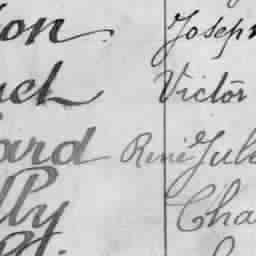 on Joseph
uch Victor
ard René Jule
lly Cha